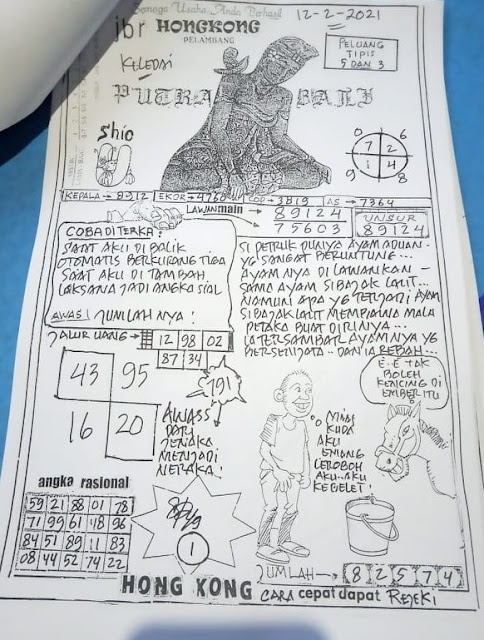 Semoga Usaha Anda Berhasil
12-2-2021
jbr HONGKONG
PELAMBANG
KELEDAI
PELUANG
TIPIS
5 DAN 3
PUTRA BALI
Shio
0 6
7 2
1 4
9 8
KEPALA = 8912 EKOR = 4760 COP = 3819 AS = 7364
LAWAN main → 89124
75603
UNSUR
89124
COBA DI TERKA :
SAAT AKU DI BALIK
OTOMATIS BERKURANG TIGA
SAAT AKU DI TAMBAH
LAKSANA JADI ANGKA SIAL
AWAS! JUMLAH NYA !
SI PETRUK PUNYA AYAM ADUAN.
YG SANGAT BERUNTUNG...
AYAM NYA DI LAWANKAN -
SAMA AYAM SI BAJAK LAUT...
NAMUN APA YG TERJADI AYAM
SI BAJAK LAUT MEMBAWA MALA
PETAKA BUAT DIRINYA...
IA TERSAMBAR AYAMNYA YG
BERSENJATA.. DAN IA REBAH...
JALUR UANG → 12 98 02
87 34
191
43 95
16 20
AWASS
DARI
JENAKA
MENJADI
NERAKA!
E-E TAK
BOLEH
KENCING DI
EMBER ITU
MAAF
KUDA
AKU
EMANG
CEROBOH
AKU.. AKU
KEBELET!
angka rasional
59 21 88 01 78
71 99 61 18 96
84 51 89 11 83
08 44 52 74 22
1
JUMLAH → 8 2 5 7 4
HONG KONG CARA cepat dapat REJEKI